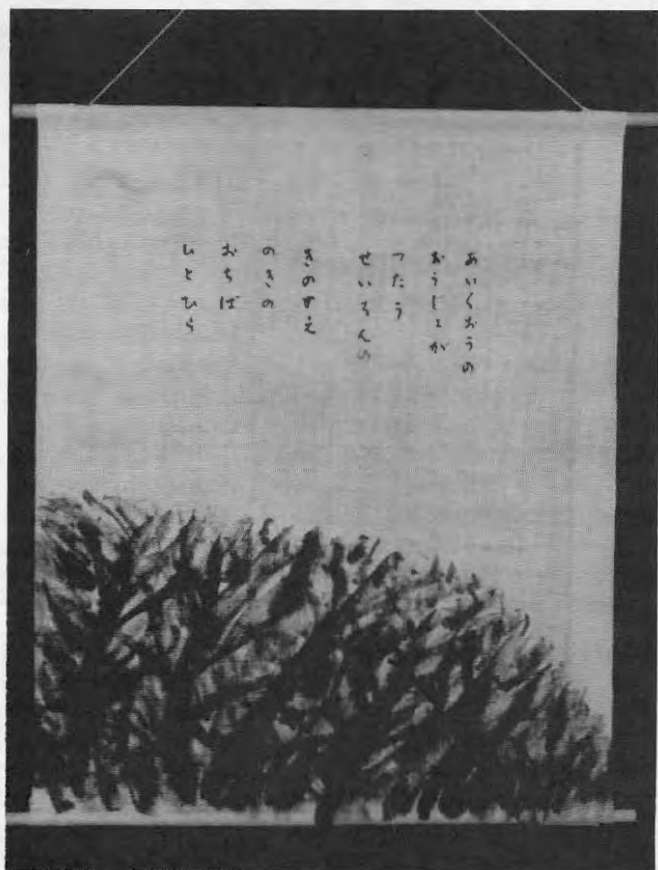 あいくおうの
おうじょが
つたう
せいろんの
きのすえ
のきの
おちば
ひとひら